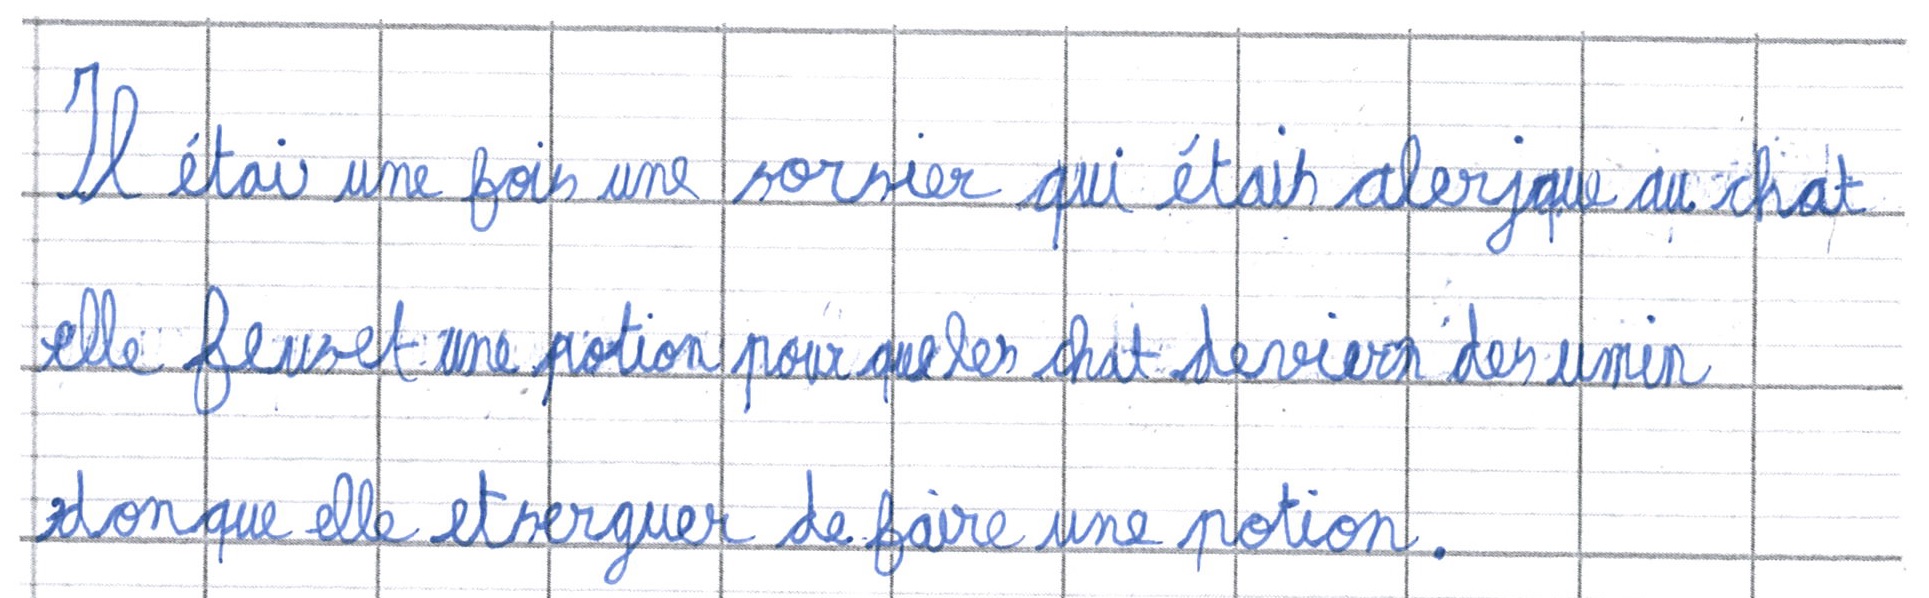 Il étai une fois une sorsier qui étais alerjque au chat
elle feuset une potion pour que les chat devienn des umin
donque elle etserguer de faire une potion.